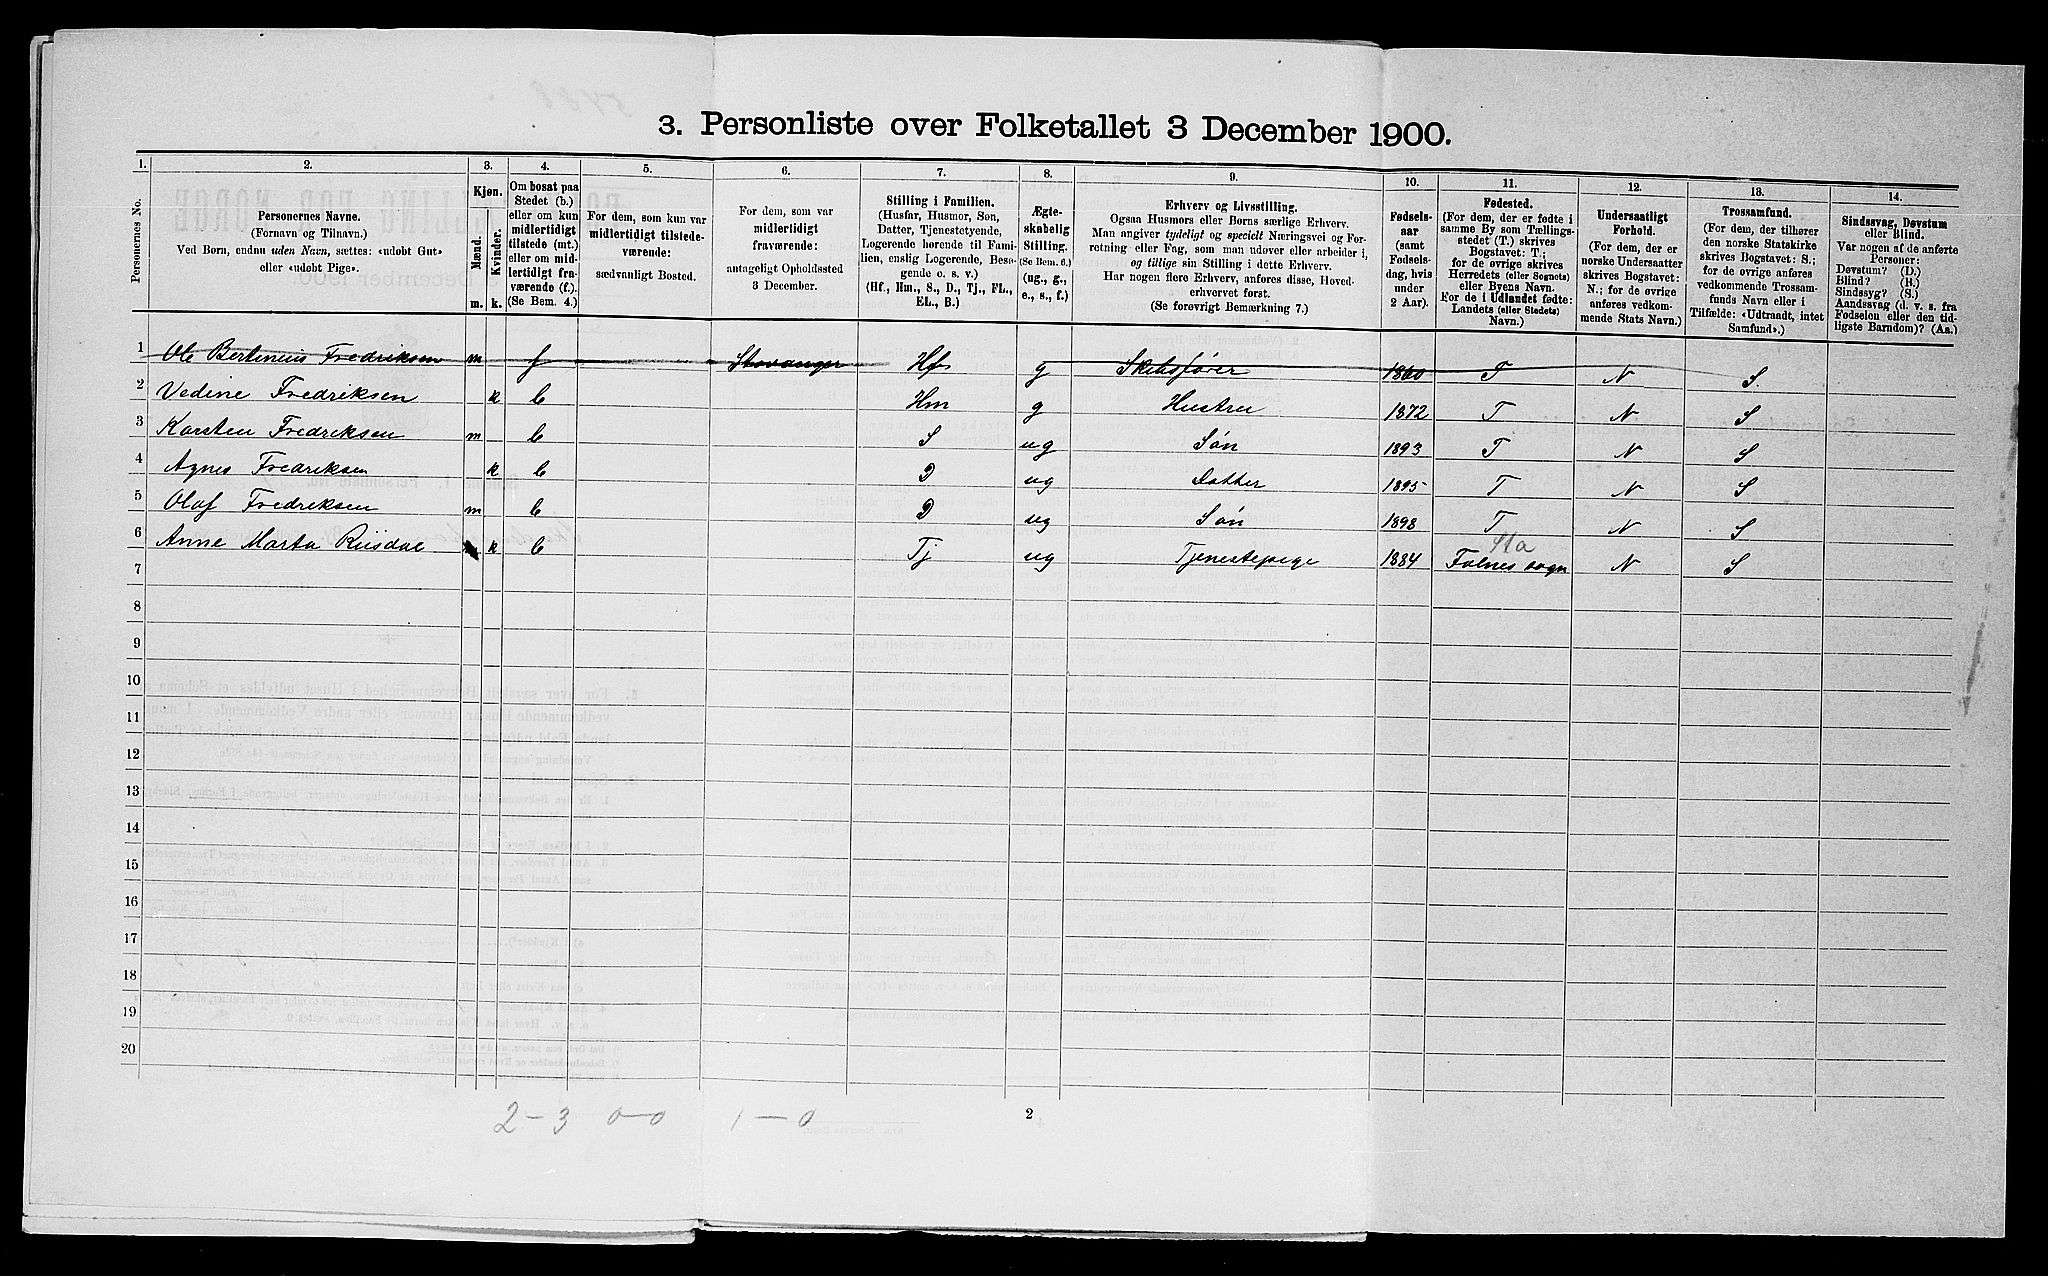 3. Personliste over Folketallet 3 December 1900.
1. 2. 3. 4. 5. 6. 7. 8. 9. 10. 11. 12. 13. 14.
Personernes No.
Personernes Navne.
(Fornavn og Tilnavn.)
Ved Børn, endnu uden Navn, sættes: «udøbt Gut»
eller «udøbt Pige».
Kjøn.
Mænd.
Kvinder.
m. k.
Om bosat paa
Stedet (b.)
eller om kun
midlertidigt
tilstede (mt.)
eller om mid-
lertidigt fra-
værende (f.).
(Se Bem. 4.)
For dem, som kun var
midlertidigt tilstede-
værende:
sædvanligt Bosted.
For dem, som var
midlertidigt
fraværende:
antageligt Opholdssted
3 December.
Stilling i Familien.
(Husfar, Husmor, Søn,
Datter, Tjenestetyende,
Logerende hørende til Fami-
lien, enslig Logerende, Besø-
gende o. s. v.)
(Hf., Hm., S., D., Tj., FL.,
EL., B.)
Ægte-
skabelig
Stilling.
(Se Bem. 6.)
(ug., g.,
e., s., f.)
Erhverv og Livsstilling.
Ogsaa Husmors eller Børns særlige Erhverv.
Man angiver tydeligt og specielt Næringsvei og For-
retning eller Fag, som man udøver eller arbeider i,
og tillige sin Stilling i dette Erhverv.
Har nogen flere Erhverv, anføres disse, Hoved-
erhvervet først.
(Se forøvrigt Bemærkning 7.)
Fødsels-
aar
(samt
Fødsels-
dag, hvis
under
2 Aar).
Fødested.
(For dem, der er fødte i
samme By som Tællings-
stedet (T.) skrives
Bogstavet: T.;
for de øvrige skrives
Herredets (eller Sognets)
eller Byens Navn.
For de i Udlandet fødte:
Landets (eller Stedets)
Navn.)
Undersaatligt
Forhold.
(For dem, der er
norske Undersaatter
skrives Bogstavet:
N.; for de øvrige
anføres vedkom-
mende Stats Navn.)
Trossamfund.
(For dem, der tilhører
den norske Statskirke
skrives Bogstavet: S.;
for de øvrige anføres
vedkommende Trossam-
funds Navn eller i
Tilfælde: «Udtraadt, intet
Samfund».)
Sindssvag, Døvstum
eller Blind.
Var nogen af de anførte
Personer:
Døvstum? (D.)
Blind? (B.)
Sindssyg? (S.)
Aandssvag (d. v. s. fra
Fødselen eller den tid-
ligste Barndom)? (Aa.)
1 Ole Bertinius Fredriksen m f Stavanger Hf g Skibsfører 1860 T N S.
2 Vedine Fredriksen k b Hm g Hustru 1872 T N S
3 Karsten Fredriksen m b S ug Søn 1893 T N S
4 Agnes Fredriksen k b D ug Datter 1895 T N S
5 Olaf Fredriksen m b D ug Søn 1898 T N S
6 Anne Marta Riisdal k b Tj ug Tjenestepige 1884 Falnes sogn N S
7
8
9
10
11
12
13
14
15
16
17
18
19
20
2-3 0-0 1-0
2